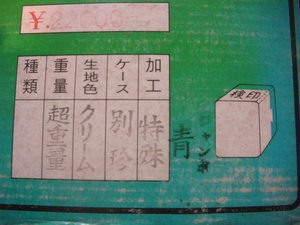 ¥.
加工 特殊
ケース 別珍
生地色 クリーム
重量 超重量
種類
検印
ジャンボ
青